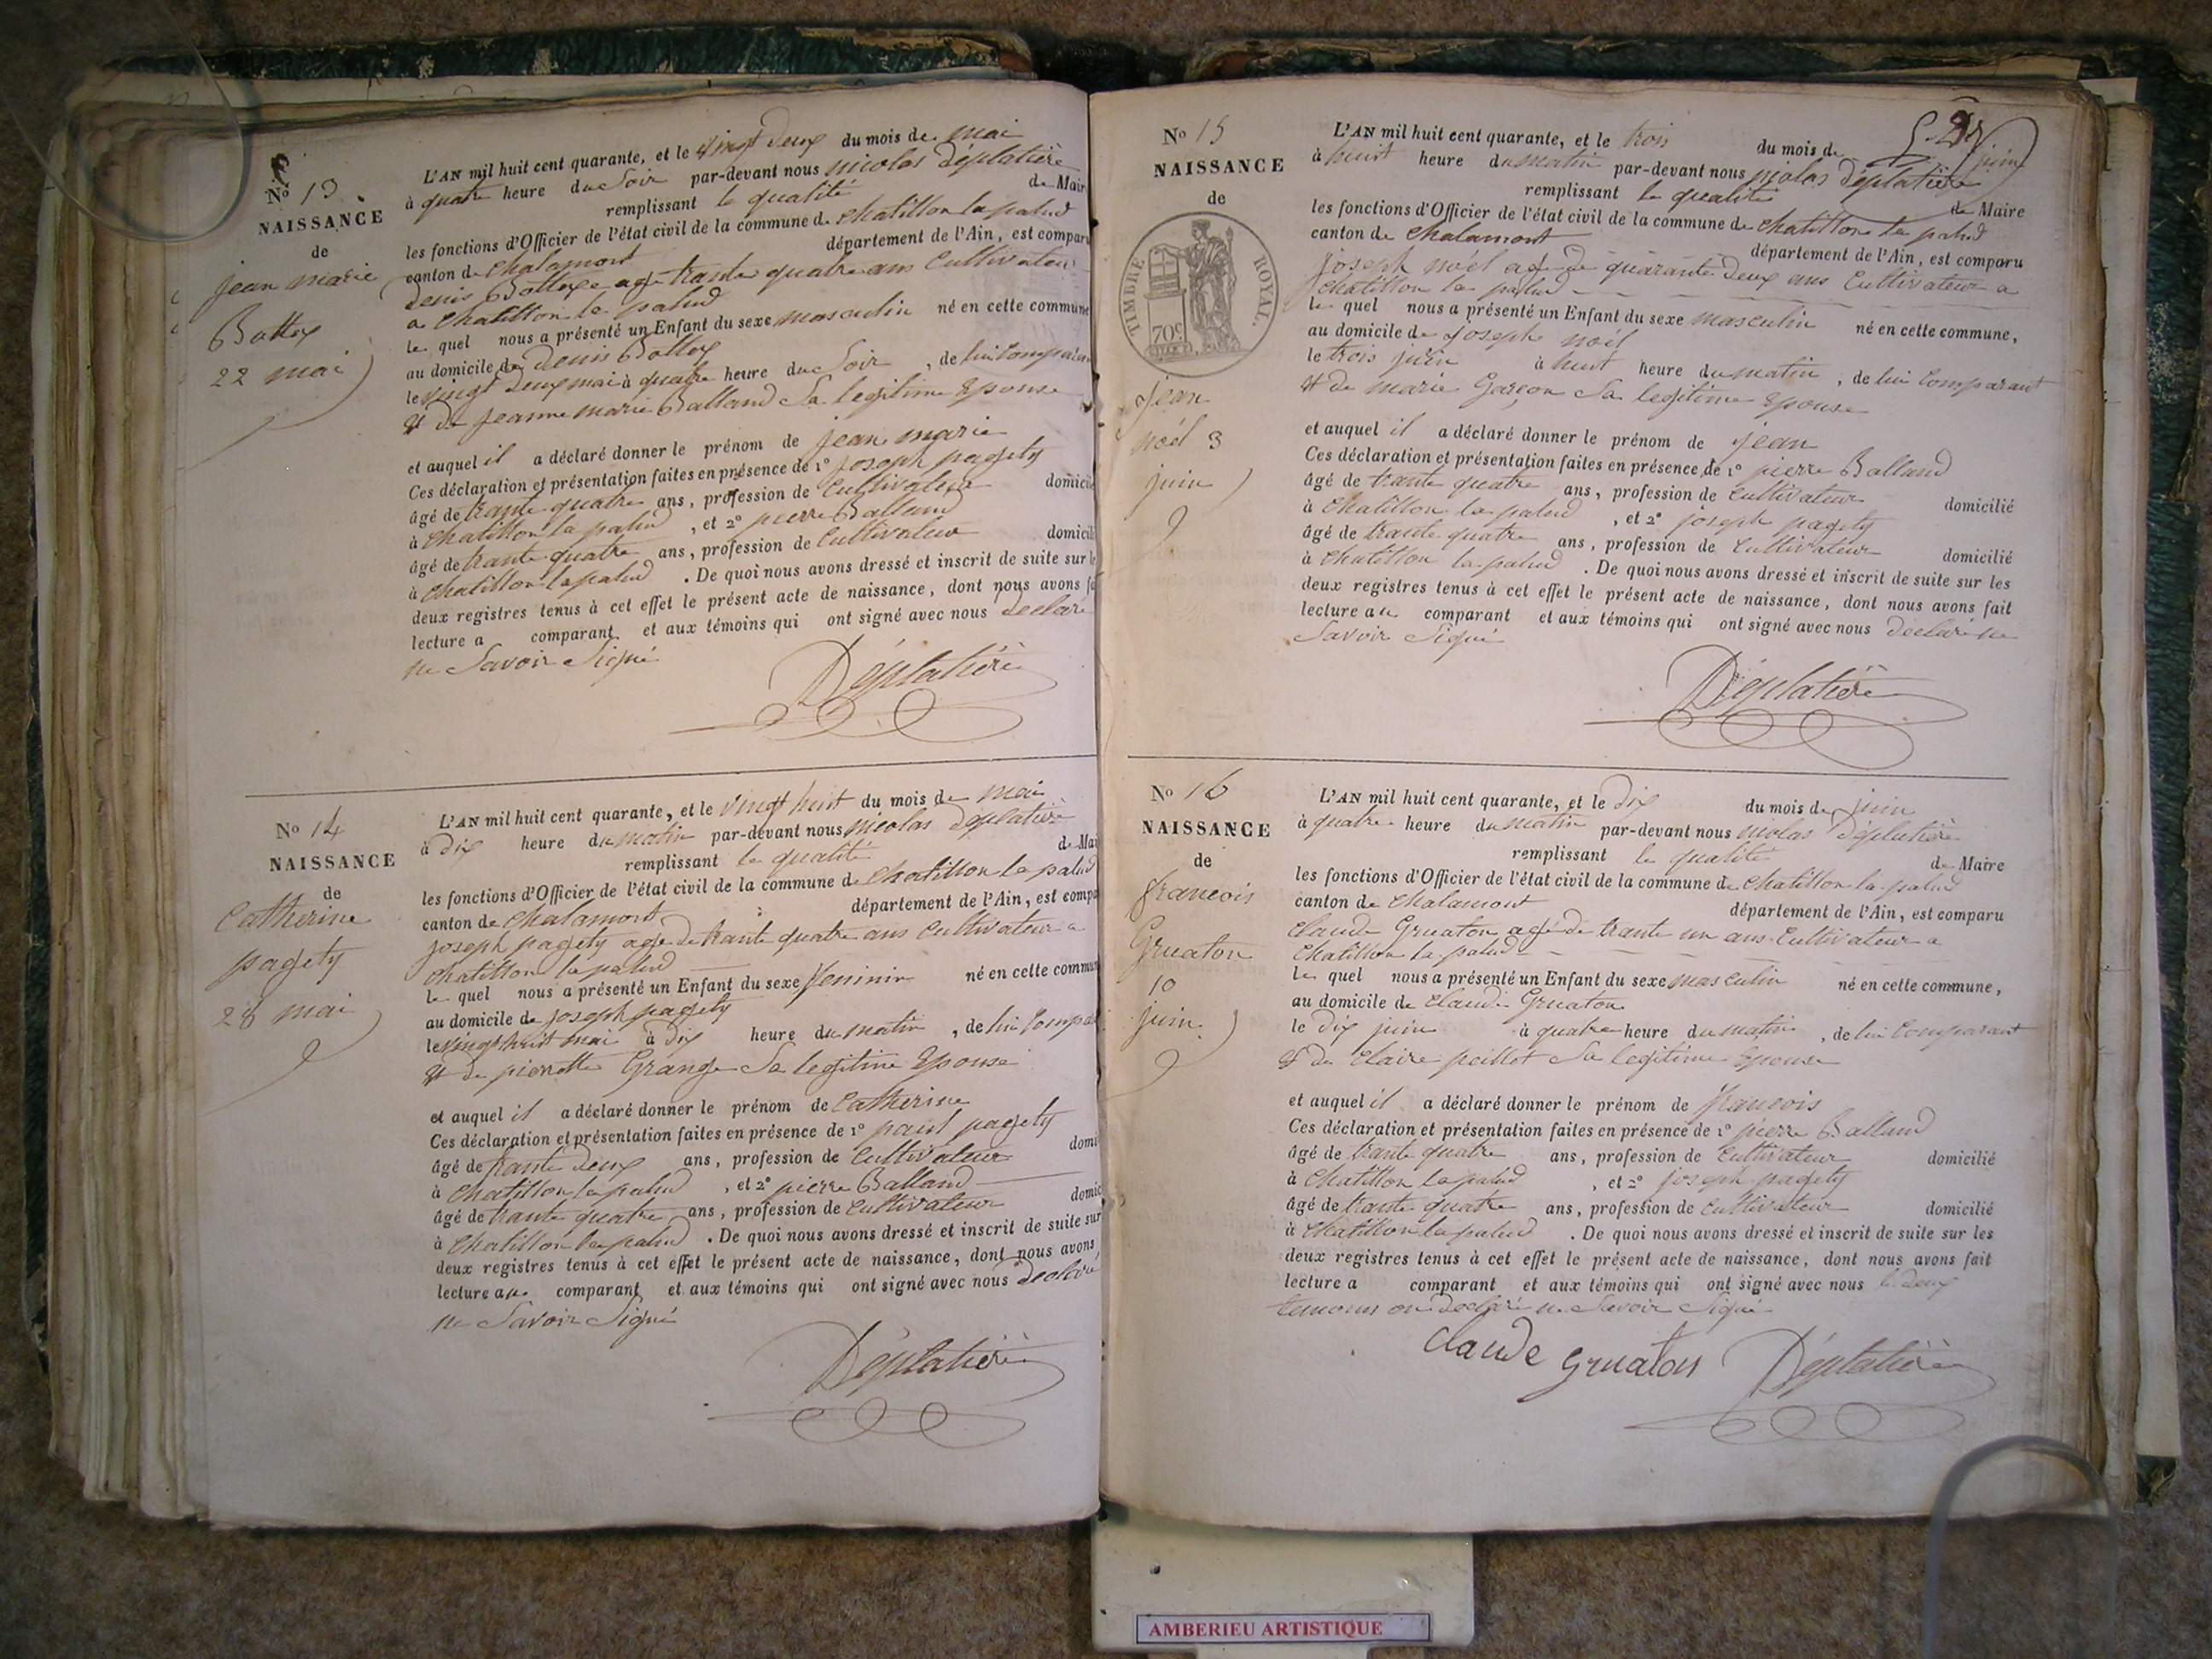 No 13
NAISSANCE
de
jean marie
Bottex
22 mai
L'AN mil huit cent quarante, et le vingt deux du mois de mai
à quatre heure du Soir par-devant nous nicolas Déplatière
remplissant la qualité de Mair
les fonctions d'Officier de l'état civil de la commune de chatillon la palud
canton de chalamont département de l'Ain, est comparu
denis Bottex age trante quatre ans Cultivateur
a chatillon la palud
le quel nous a présenté un Enfant du sexe masculin né en cette commune
au domicile de Denis Bottex
le vingt deux mai à quatre heure du Soir, de lui Comparan
& de jeanne marie Balland Sa legitime Epouse
et auquel il a déclaré donner le prénom de jean marie
Ces déclaration et présentation faites en présence de 1° joseph pagety
âgé de trante quatre ans, profession de Cultivateur domicil
à chatillon la palud, et 2° pierre Balland
âgé de trante quatre ans, profession de Cultivateur domicili
à chatillon la palud. De quoi nous avons dressé et inscrit de suite sur le
deux registres tenus à cet effet le présent acte de naissance, dont nous avons fa
lecture a comparant et aux témoins qui ont signé avec nous declaré
ne Savoir Signé
Déplatière
No 14
NAISSANCE
de
Catherine
pagety
28 mai
L'AN mil huit cent quarante, et le vingt huit du mois de mai
à dix heure du matin par-devant nous nicolas Déplatière
remplissant la qualité de Mai
les fonctions d'Officier de l'état civil de la commune de chatillon la palud
canton de chalamont département de l'Ain, est compa
joseph pagety age de trante quatre ans Cultivateur a
chatillon la palud
le quel nous a présenté un Enfant du sexe feminin né en cette commun
au domicile de joseph pagety
le vingt huit mai à dix heure du matin, de lui Compa
& de pierrette Grange Sa legitime Epouse
et auquel il a déclaré donner le prénom de Catherine
Ces déclaration et présentation faites en présence de 1° paul pagety
âgé de trante deux ans, profession de Cultivateur domi
à chatillon la palud, et 2° pierre Balland
âgé de trante quatre ans, profession de Cultivateur domic
à chatillon la palud. De quoi nous avons dressé et inscrit de suite sur
deux registres tenus à cet effet le présent acte de naissance, dont nous avons
lecture au comparant et aux témoins qui ont signé avec nous declaré
ne Savoir Signé
Déplatière
No 15
NAISSANCE
de
TIMBRE ROYAL.
70c
jean
noël 3
juin
L'AN mil huit cent quarante, et le trois du mois de juin
à huit heure du matin par-devant nous nicolas Déplatière
remplissant la qualité de Maire
les fonctions d'Officier de l'état civil de la commune de chatillon la palud
canton de chalamont département de l'Ain, est comparu
joseph noël age de quarante deux ans Cultivateur a
chatillon la palud
le quel nous a présenté un Enfant du sexe masculin né en cette commune,
au domicile de joseph noël
le trois juin à huit heure du matin, de lui Comparant
& de marie Garçon Sa legitime Epouse
et auquel il a déclaré donner le prénom de jean
Ces déclaration et présentation faites en présence de 1° pierre Balland
âgé de trante quatre ans, profession de Cultivateur domicilié
à chatillon la palud, et 2° joseph pagety
âgé de trante quatre ans, profession de Cultivateur domicilié
à chatillon la palud. De quoi nous avons dressé et inscrit de suite sur les
deux registres tenus à cet effet le présent acte de naissance, dont nous avons fait
lecture au comparant et aux témoins qui ont signé avec nous declaré ne
Savoir Signé
Déplatière
No 16
NAISSANCE
de
francois
Gruaton
10
juin
L'AN mil huit cent quarante, et le dix du mois de juin
à quatre heure du matin par-devant nous nicolas Déplatière
remplissant la qualité de Maire
les fonctions d'Officier de l'état civil de la commune de chatillon la palud
canton de chalamont département de l'Ain, est comparu
claude Gruaton age de trante un ans Cultivateur a
chatillon la palud
le quel nous a présenté un Enfant du sexe masculin né en cette commune,
au domicile de claude Gruaton
le dix juin à quatre heure du matin, de lui Comparant
& de claire peillet Sa legitime Epouse
et auquel il a déclaré donner le prénom de francois
Ces déclaration et présentation faites en présence de 1° pierre Balland
âgé de trante quatre ans, profession de Cultivateur domicilié
à chatillon la palud, et 2° joseph pagety
âgé de trante quatre ans, profession de Cultivateur domicilié
à chatillon la palud. De quoi nous avons dressé et inscrit de suite sur les
deux registres tenus à cet effet le présent acte de naissance, dont nous avons fait
lecture a comparant et aux témoins qui ont signé avec nous le deux
temoins on declaré ne Savoir Signé
claude gruaton Déplatière
AMBERIEU ARTISTIQUE